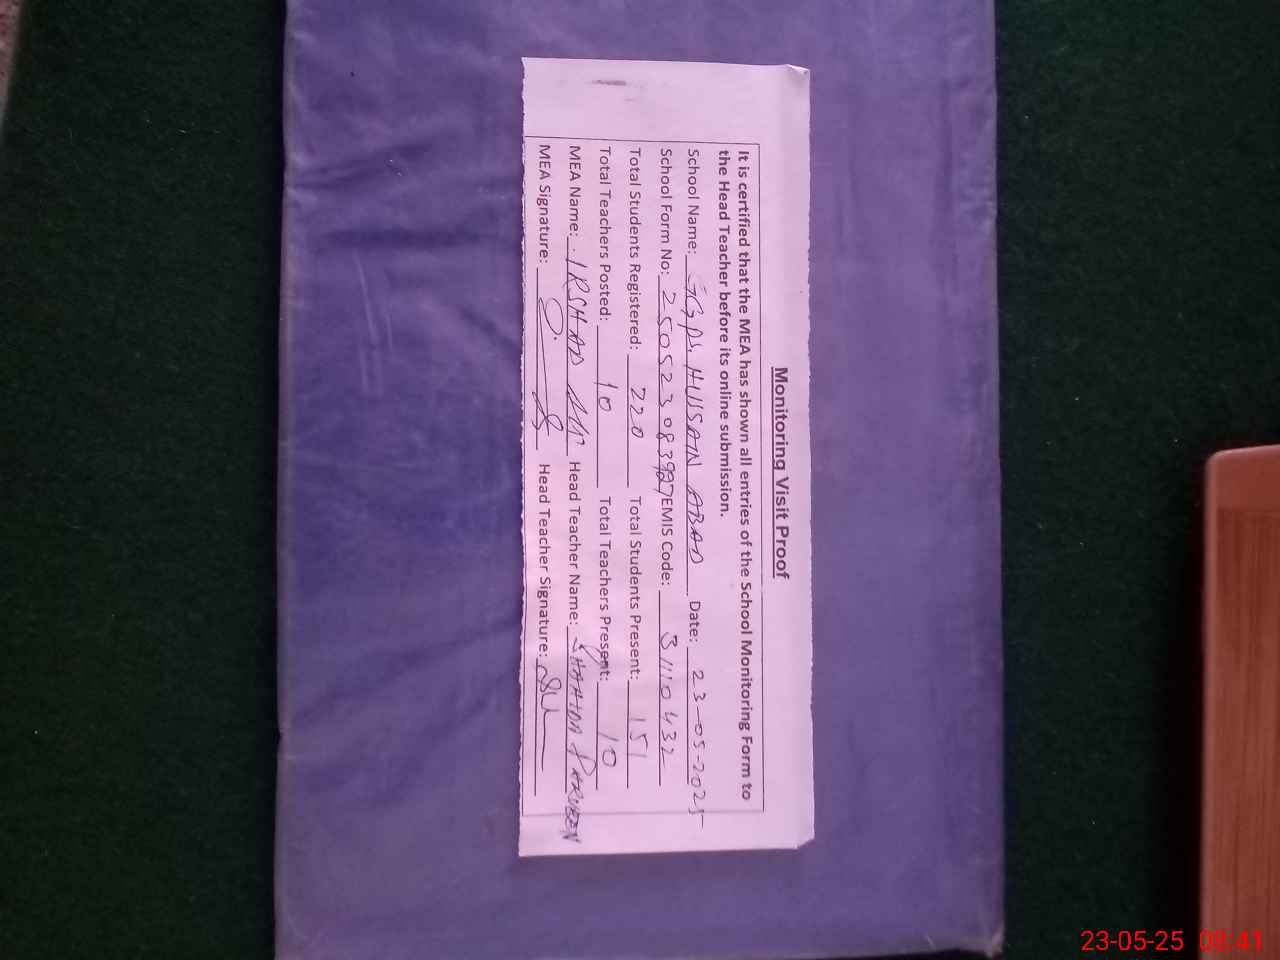 Monitoring Visit Proof
It is certified that the MEA has shown all entries of the School Monitoring Form to
the Head Teacher before its online submission.
School Name: GGPS. HUSSAIN ABAD Date: 23-05-2025
School Form No: 250523083927 EMIS Code: 31110432
Total Students Registered: 220 Total Students Present: 151
Total Teachers Posted: 10 Total Teachers Present: 10
MEA Name: IRSHAD Ali Head Teacher Name: SHAHIDA PARVEEN
MEA Signature: Head Teacher Signature:
23-05-25 08:41